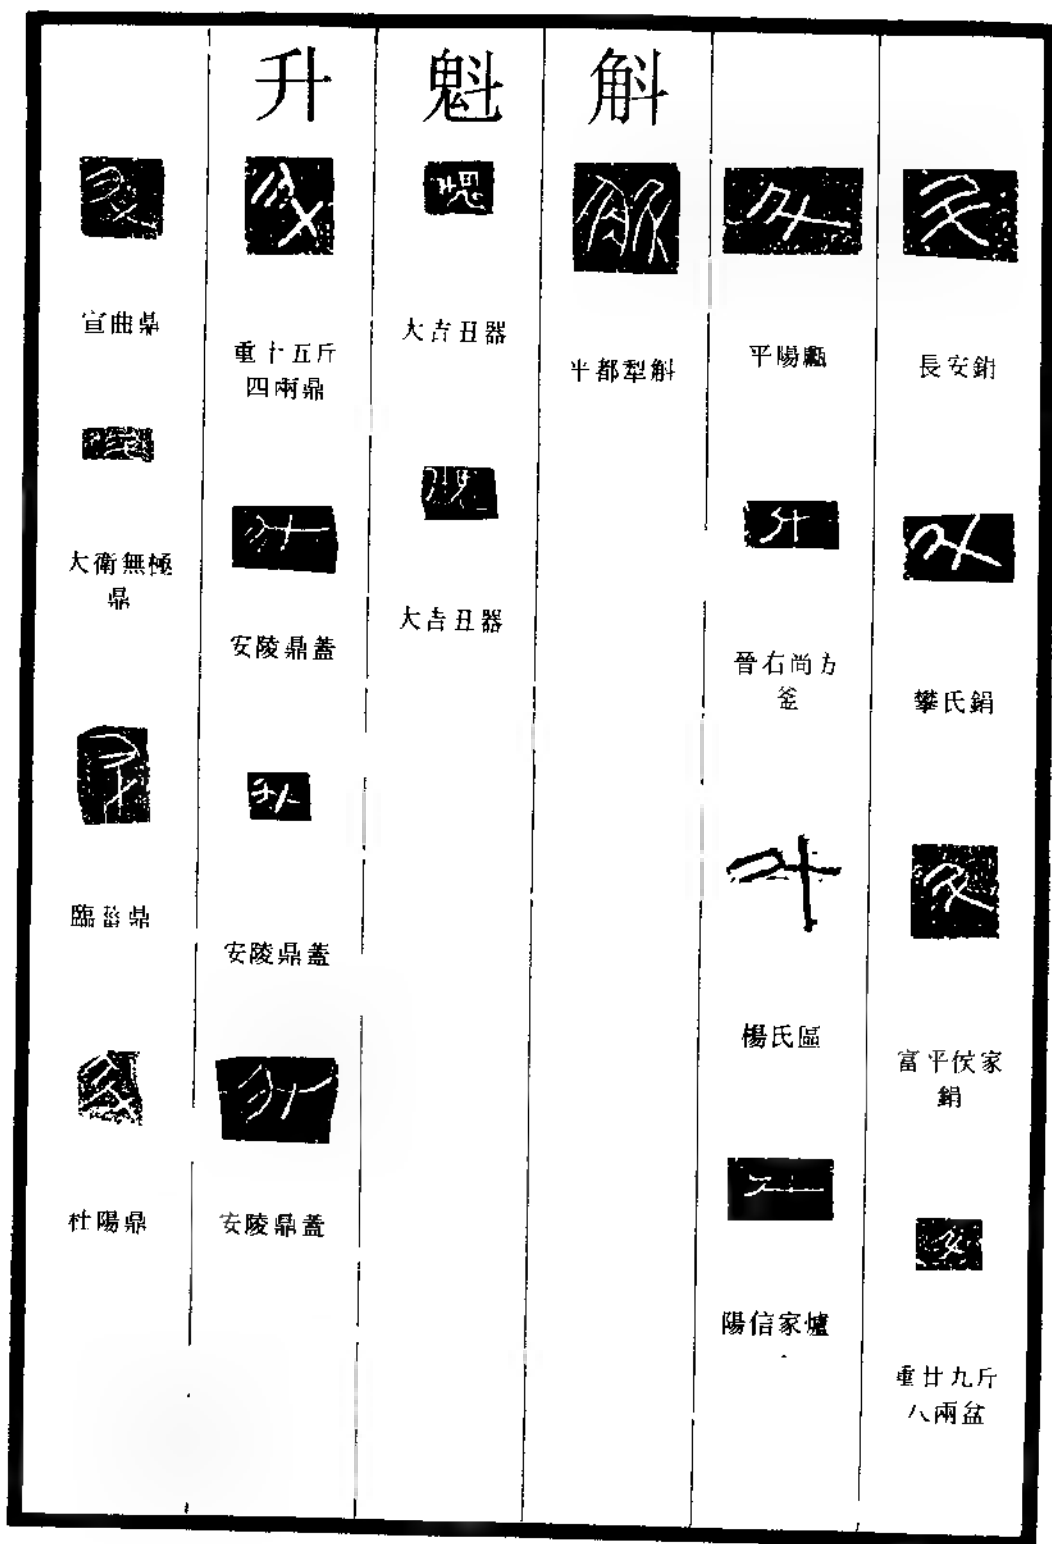 長安鋗
攀氏鋗
富平侯家
鋗
重廿九斤
八兩盆
平陽甗
晉右尚方
釜
楊氏區
陽信家爐
斛
半都犁斛
魁
大吉丑器
大吉丑器
升
重十五斤
四兩鼎
安陵鼎蓋
安陵鼎蓋
安陵鼎蓋
宣曲鼎
大衛無極
鼎
臨菑鼎
杜陽鼎